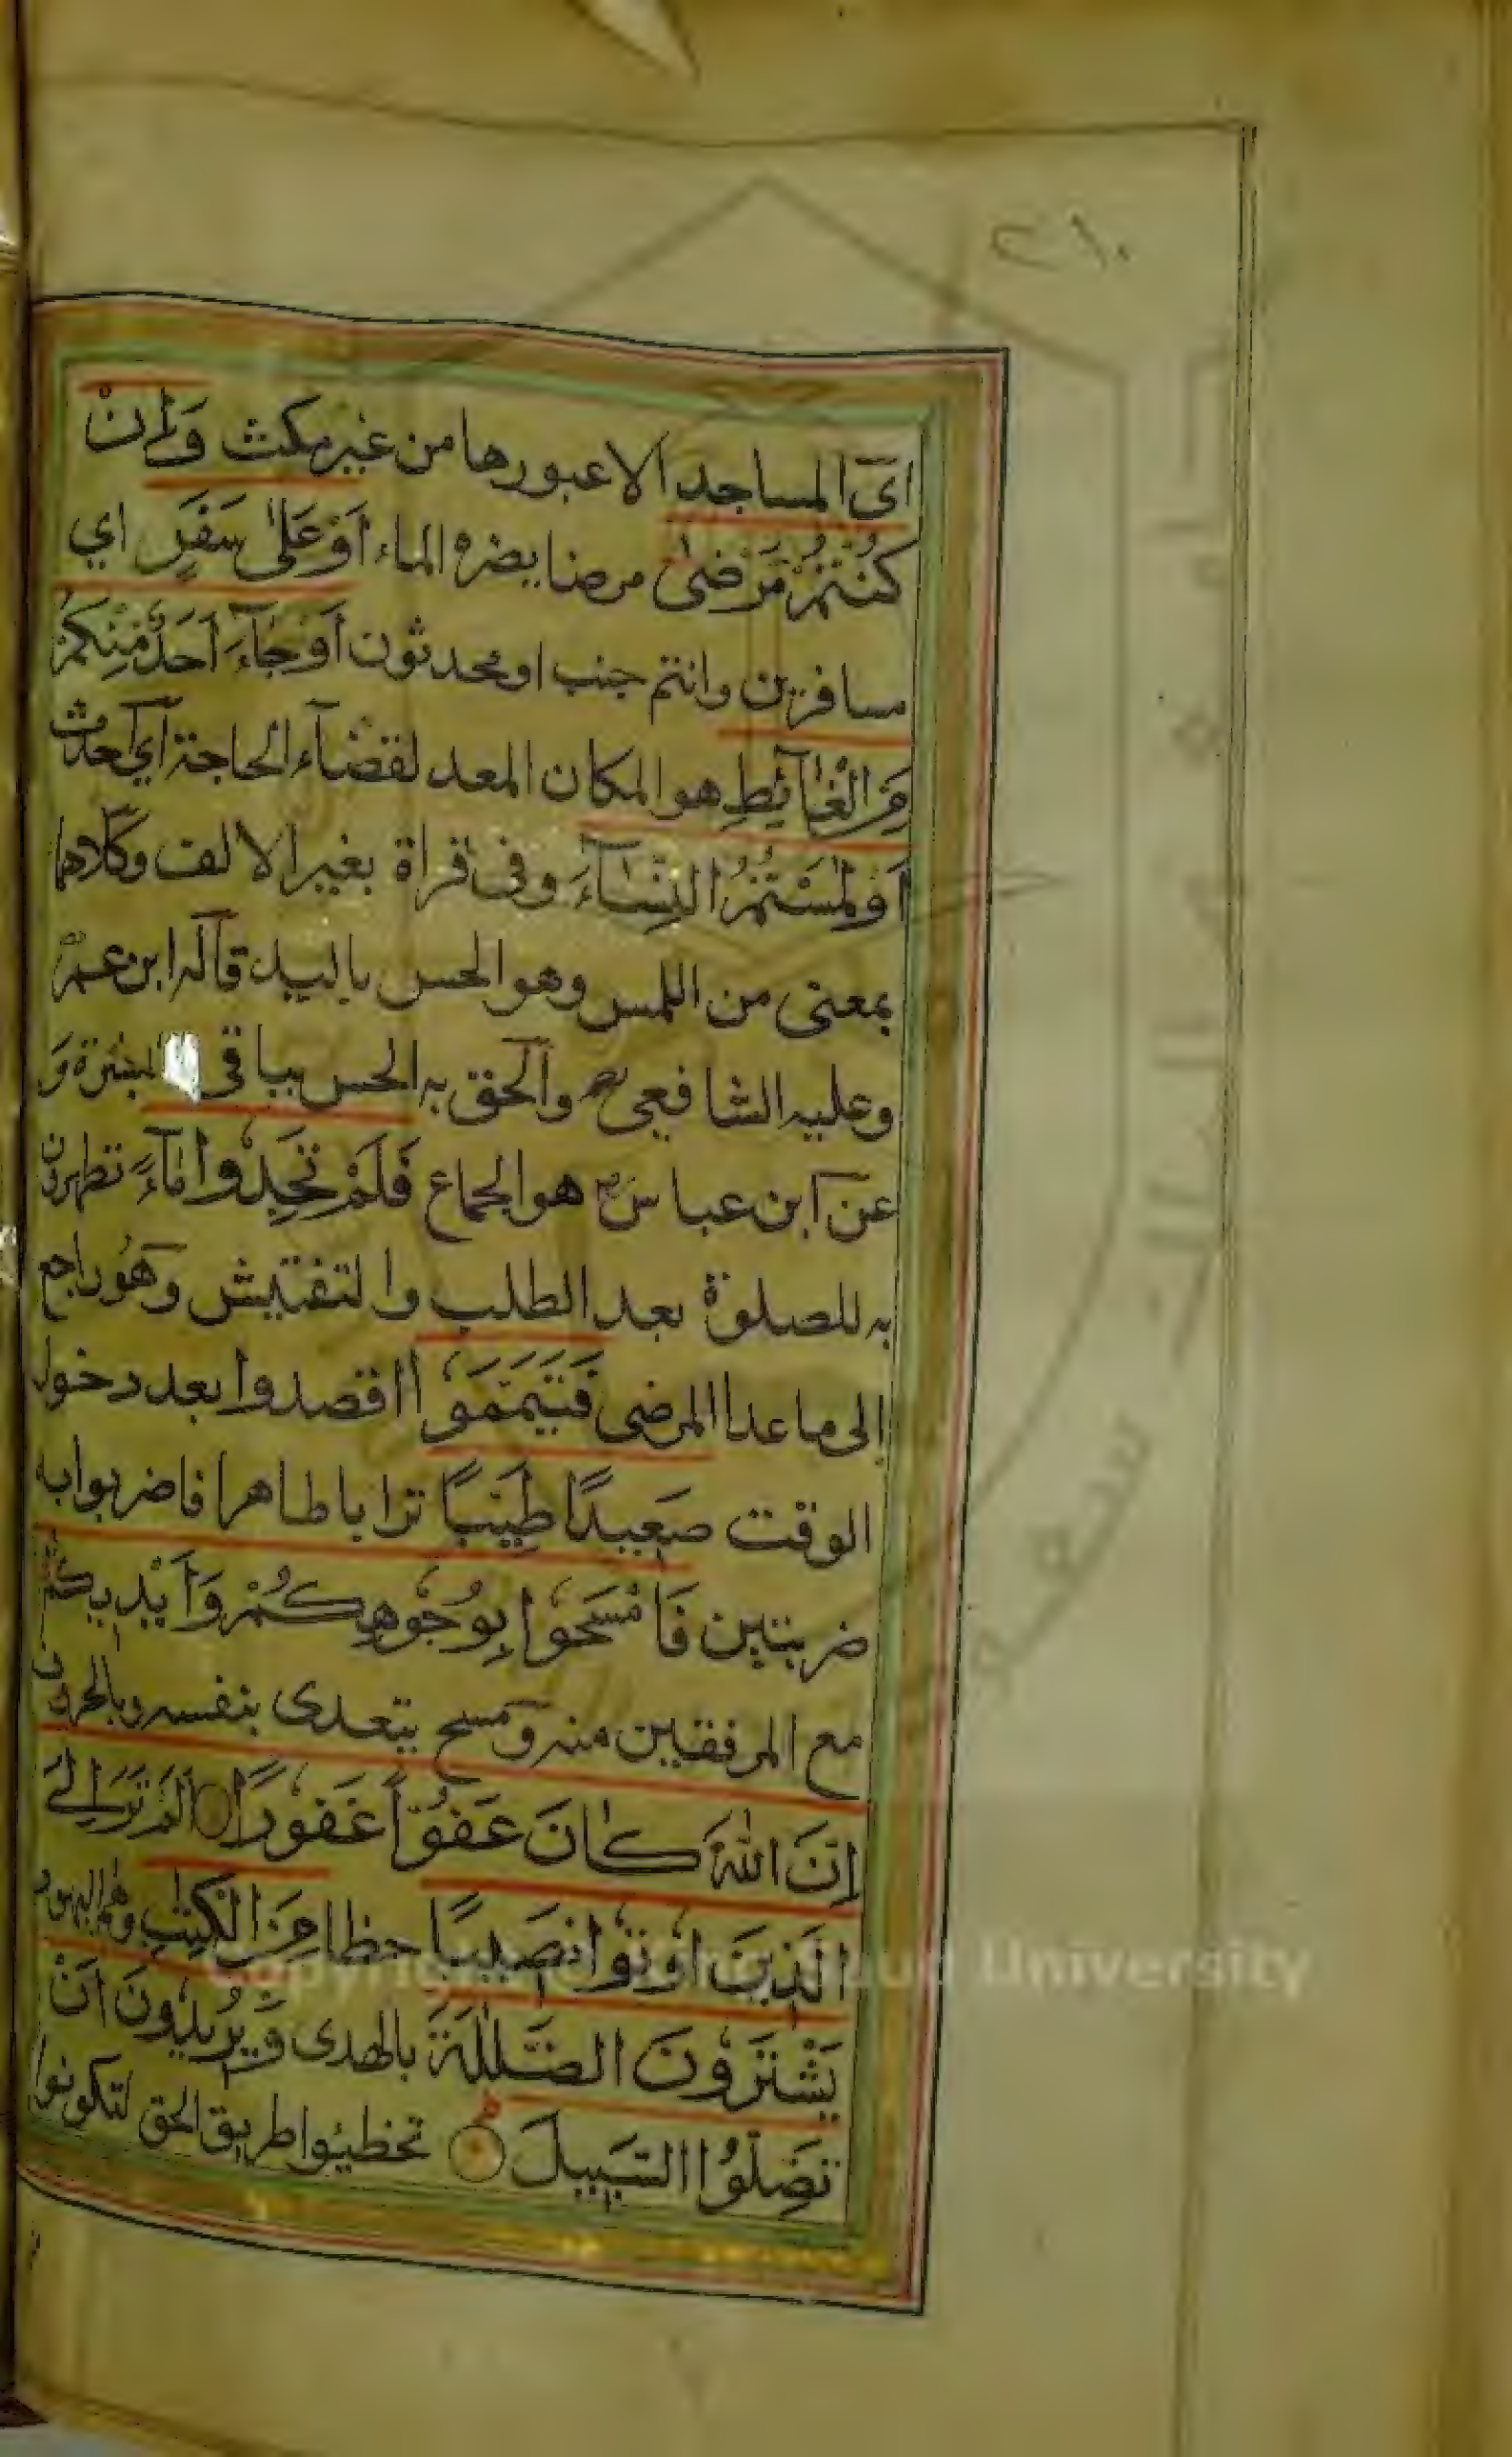 ٢١٠
اى المساجد الا عبورها من غير مكث وَاِنْ
كُنْتُمْ مَّرْضٰٓى مرضا يضره الماء اَوْ عَلٰى سَفَرٍ اي
مسافرين وانتم جنب او محدثون اَوْ جَآءَ اَحَدٌ مِّنْكُمْ
مِّنَ الْغَآئِطِ هو المكان المعد لقضآء الحاجة اي احدث
اَوْ لٰمَسْتُمُ النِّسَآءَ وفى قراة بغير الالف وكلاهما
بمعنى من اللمس وهو الجس باليد قاله ابن عمر
وعليه الشافعي والحق به الجس بباقى البشرة و
عن ابن عباس هو الجماع فَلَمْ تَجِدُوْا مَآءً تطهرون
به للصلوة بعد الطلب والتفتيش وهو راجع
الى ما عدا المرضى فَتَيَمَّمُوْا اقصدوا بعد دخول
الوقت صَعِيْدًا طَيِّبًا ترابا طاهرا فاضربوا به
ضربتين فَامْسَحُوْا بِوُجُوْهِكُمْ وَاَيْدِيْكُمْ
مع المرفقين منه ومسح يتعدى بنفسه وبالحرف
اِنَّ اللّٰهَ كَانَ عَفُوًّا غَفُوْرًا اَلَمْ تَرَ اِلَى
الَّذِيْنَ اُوْتُوْا نَصِيْبًا حظا مِّنَ الْكِتٰبِ وهم اليهود
يَشْتَرُوْنَ الضَّلٰلَةَ بالهدى وَيُرِيْدُوْنَ اَنْ
تَضِلُّوا السَّبِيْلَ تخطئوا طريق الحق لتكونوا
جامعة الملك سعود
Copyright © King Saud University